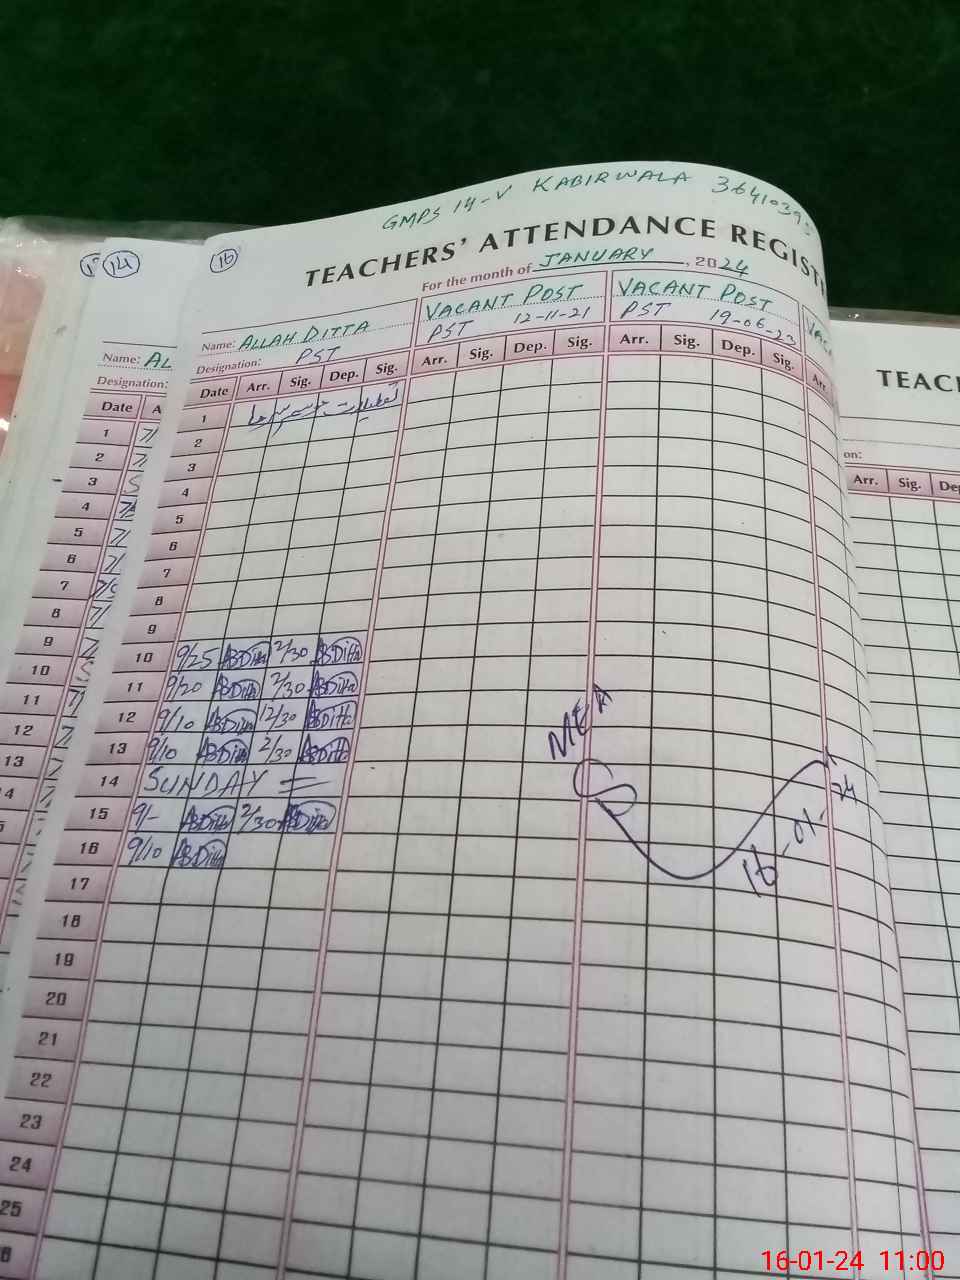 GMPS 14-V KABIRWALA 3641039
TEACHERS' ATTENDANCE REGIST
For the month of JANUARY, 2024
16
14
Name: ALLAH DITTA
VACANT POST
VACANT POST
Designation: PST
PST 12-11-21
PST 19-06-23
Date Arr. Sig. Dep. Sig. Arr. Sig. Dep. Sig. Arr. Sig. Dep. Sig. Arr.
1 تعطیلات موسم سرما
2
3
4
5
6
7
8
9
10 9/25 ABDitta 2/30 ABDitta
11 9/20 ABDitta 2/30 ABDitta
12 9/10 ABDitta 12/30 ABDitta
13 9/10 ABDitta 2/30 ABDitta
14 SUNDAY =
15 9/- ABDitta 2/30 ABDitta
16 9/10 ABDitta
17
18
19
20
21
22
23
24
25
MEA
16-01-24
Name: AL
Designation:
Date A
1
2
3
4
5
6
7
8
9
10
11
12
13
TEAC
on:
Arr. Sig. Dep
16-01-24 11:00